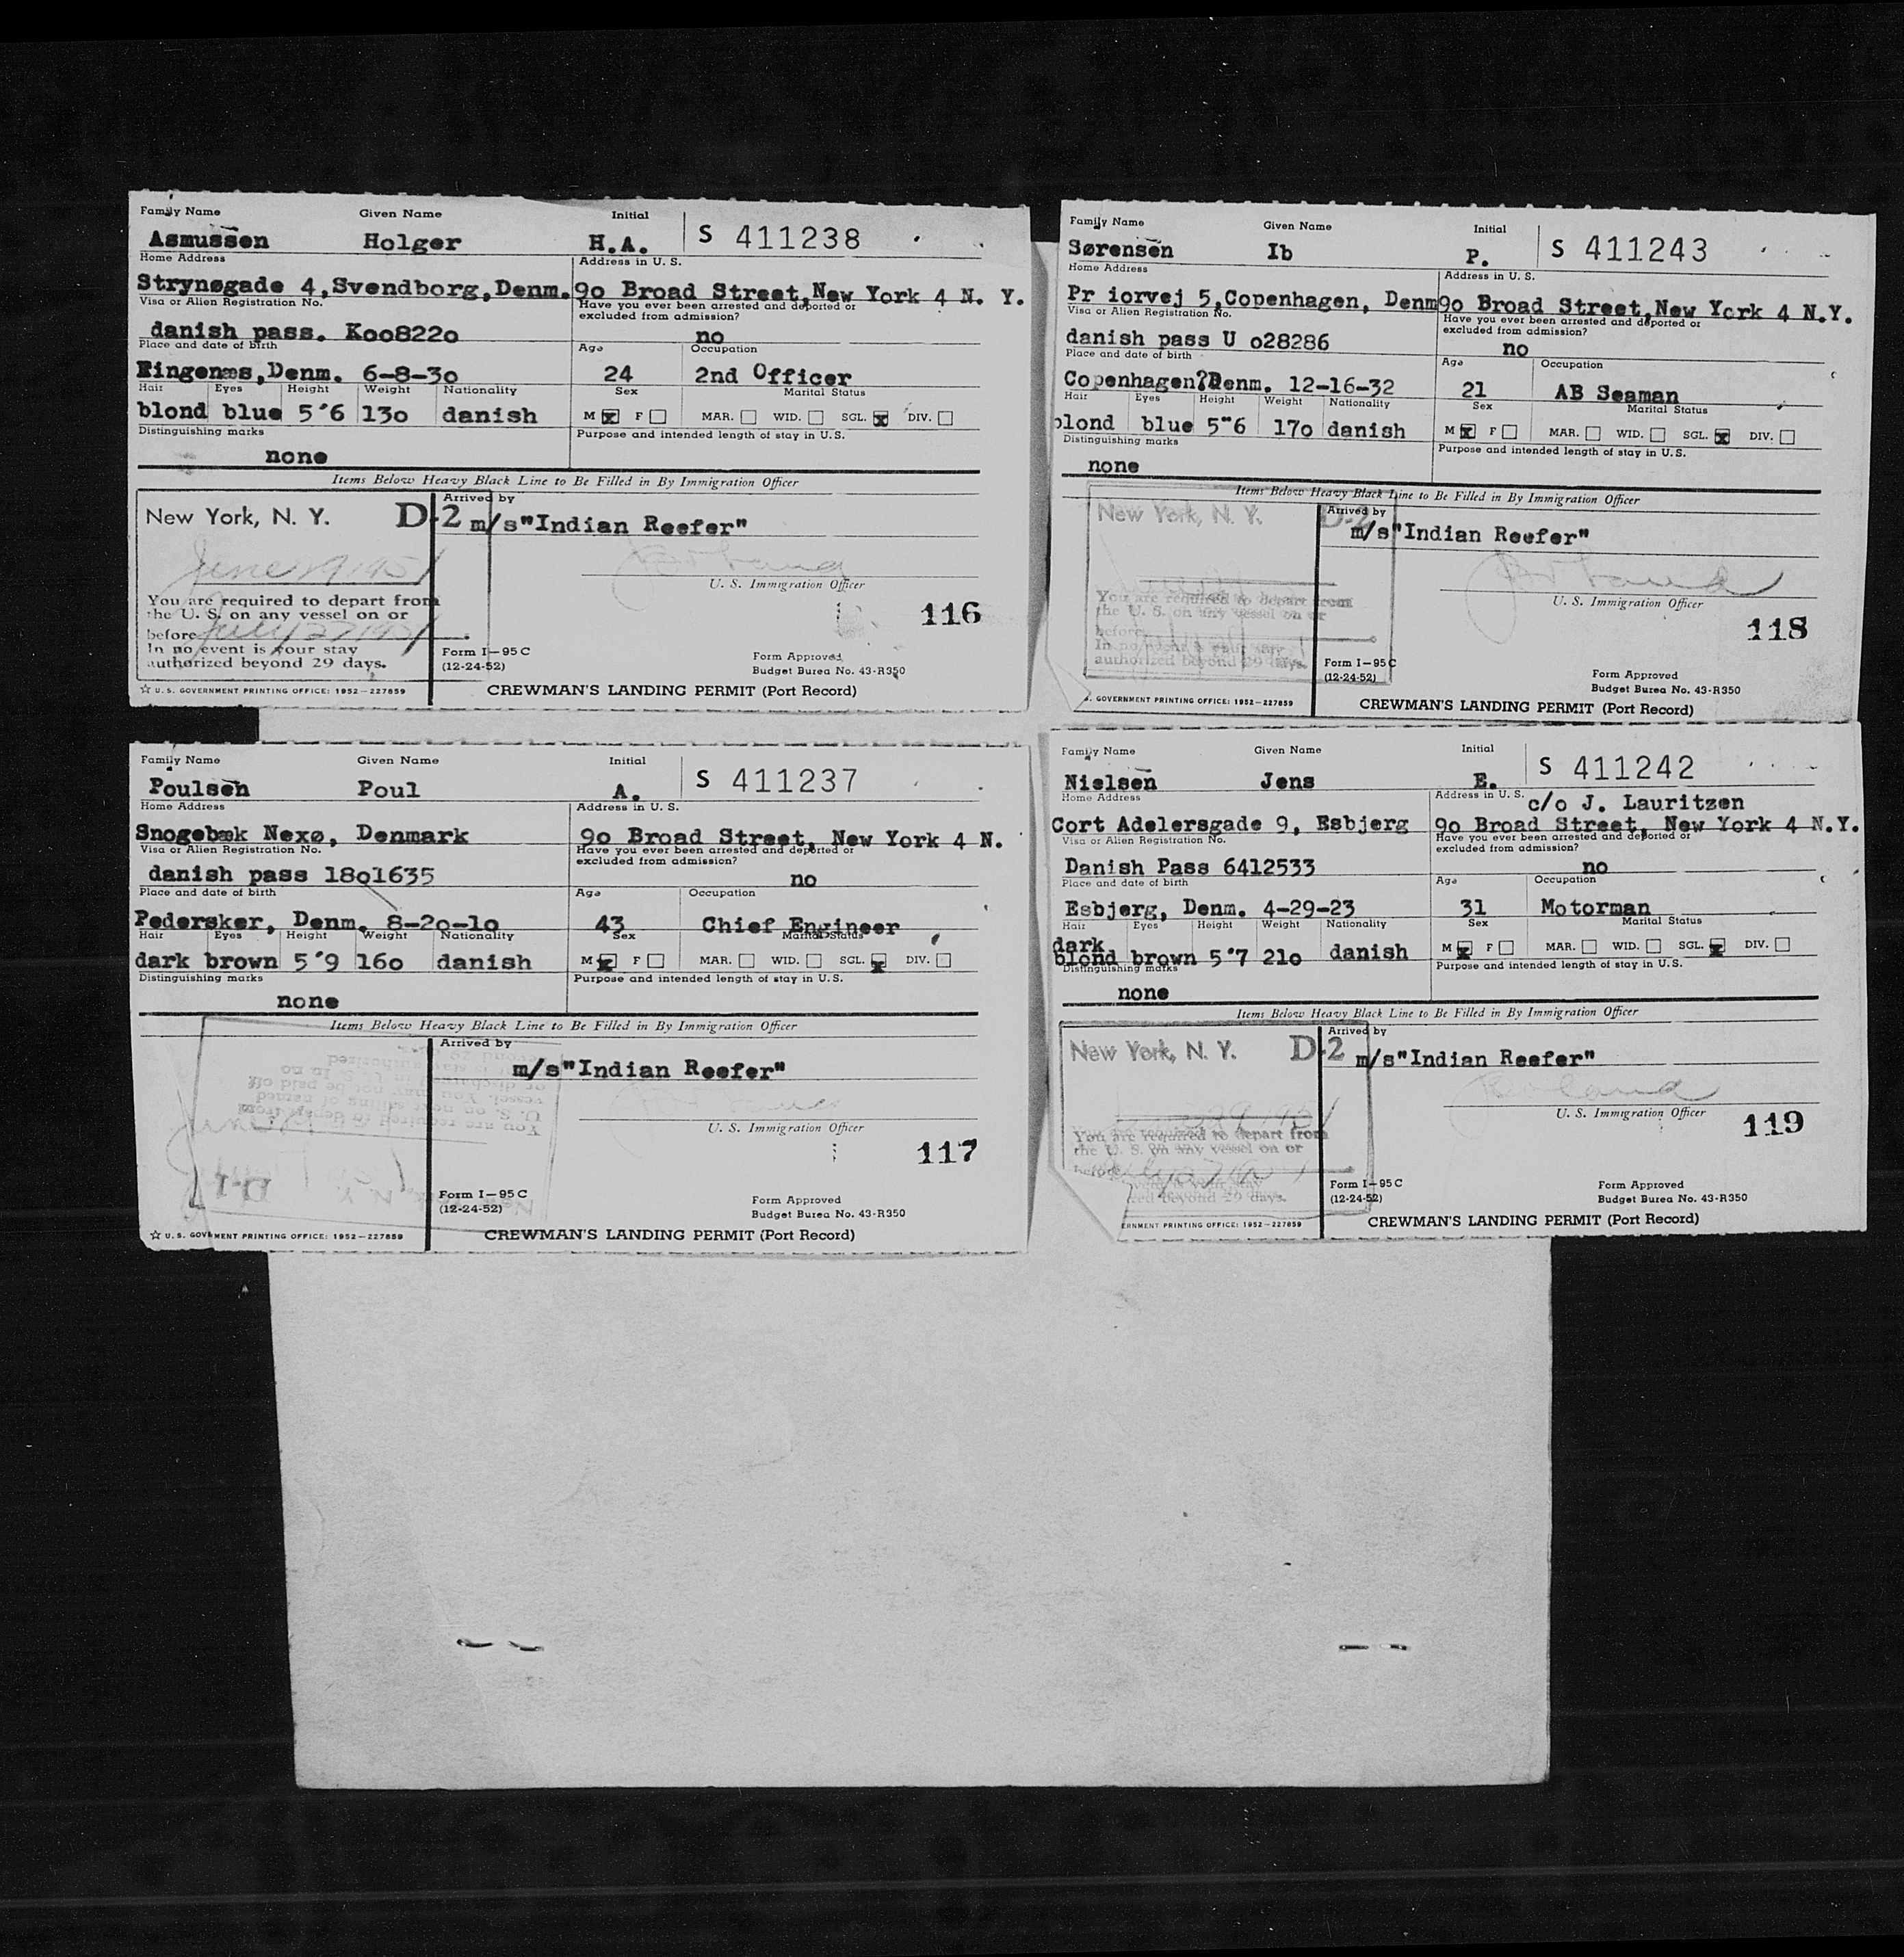 Family Name Given Name Initial
Asmussen Holger H.A. S 411238
Home Address Address in U. S.
Strynøgade 4,Svendborg,Denm. 9o Broad Street,New York 4 N. Y.
Visa or Alien Registration No. Have you ever been arrested and deported or
excluded from admission?
danish pass. Koo822o no
Place and date of birth Age Occupation
Ringenæs,Denm. 6-8-3o 24 2nd Officer
Hair Eyes Height Weight Nationality Sex Marital Status
blond blue 5"6 13o danish M F MAR. WID. SGL. DIV.
Distinguishing marks Purpose and intended length of stay in U.S.
none
Items Below Heavy Black Line to Be Filled in By Immigration Officer
Arrived by
New York, N. Y. D-2 m/s"Indian Reefer"
U. S. Immigration Officer
You are required to depart from
the U. S. on any vessel on or
116
before
In no event is your stay
authorized beyond 29 days.
Form I-95 C
(12-24-52)
Form Approved
Budget Burea No. 43-R350
☆ U. S. GOVERNMENT PRINTING OFFICE: 1952-227859 CREWMAN'S LANDING PERMIT (Port Record)
Family Name Given Name Initial
Sørensen Ib P. S 411243
Home Address Address in U. S.
Pr iorvej 5,Copenhagen, Denm 9o Broad Street,New York 4 N.Y.
Visa or Alien Registration No. Have you ever been arrested and deported or
excluded from admission?
danish pass U o28286 no
Place and date of birth Age Occupation
Copenhagen?Denm. 12-16-32 21 AB Seaman
Hair Eyes Height Weight Nationality Sex Marital Status
blond blue 5"6 17o danish M F MAR. WID. SGL. DIV.
Distinguishing marks Purpose and intended length of stay in U.S.
none
Items Below Heavy Black Line to Be Filled in By Immigration Officer
New York, N. Y. D-2 Arrived by
m/s"Indian Reefer"
U. S. Immigration Officer
You are required to depart from
the U. S. on any vessel on or
118
before
In no event is your stay
authorized beyond 29 days.
Form I-95 C
(12-24-52)
Form Approved
Budget Burea No. 43-R350
. GOVERNMENT PRINTING OFFICE: 1952-227859 CREWMAN'S LANDING PERMIT (Port Record)
Family Name Given Name Initial
Poulsen Poul A. S 411237
Home Address Address in U. S.
Snogebæk Nexø, Denmark 9o Broad Street, New York 4 N.
Visa or Alien Registration No. Have you ever been arrested and deported or
excluded from admission?
danish pass 18o1635 no
Place and date of birth Age Occupation
Pedersker, Denm. 8-2o-1o 43 Chief Engineer
Hair Eyes Height Weight Nationality Sex Marital Status
dark brown 5"9 16o danish M F MAR. WID. SGL. DIV.
Distinguishing marks Purpose and intended length of stay in U.S.
none
Items Below Heavy Black Line to Be Filled in By Immigration Officer
Arrived by
m/s"Indian Reefer"
U. S. Immigration Officer
117
D-1
Form I-95 C
(12-24-52)
Form Approved
Budget Burea No. 43-R350
☆ U. S. GOVERNMENT PRINTING OFFICE: 1952-227859 CREWMAN'S LANDING PERMIT (Port Record)
Family Name Given Name Initial
Nielsen Jens E. S 411242
Home Address Address in U. S. c/o J. Lauritzen
Cort Adelersgade 9, Esbjerg 9o Broad Street, New York 4 N.Y.
Visa or Alien Registration No. Have you ever been arrested and deported or
excluded from admission?
Danish Pass 6412533 no
Place and date of birth Age Occupation
Esbjerg, Denm. 4-29-23 31 Motorman
Hair Eyes Height Weight Nationality Sex Marital Status
dark
blond brown 5"7 21o danish M F MAR. WID. SGL. DIV.
Distinguishing marks Purpose and intended length of stay in U.S.
none
Items Below Heavy Black Line to Be Filled in By Immigration Officer
Arrived by
New York, N. Y. D-2 m/s"Indian Reefer"
U. S. Immigration Officer
You are required to depart from
the U. S. on any vessel on or
119
before
beyond 29 days.
Form I-95 C
(12-24-52)
Form Approved
Budget Burea No. 43-R350
ERNMENT PRINTING OFFICE: 1952-227859 CREWMAN'S LANDING PERMIT (Port Record)